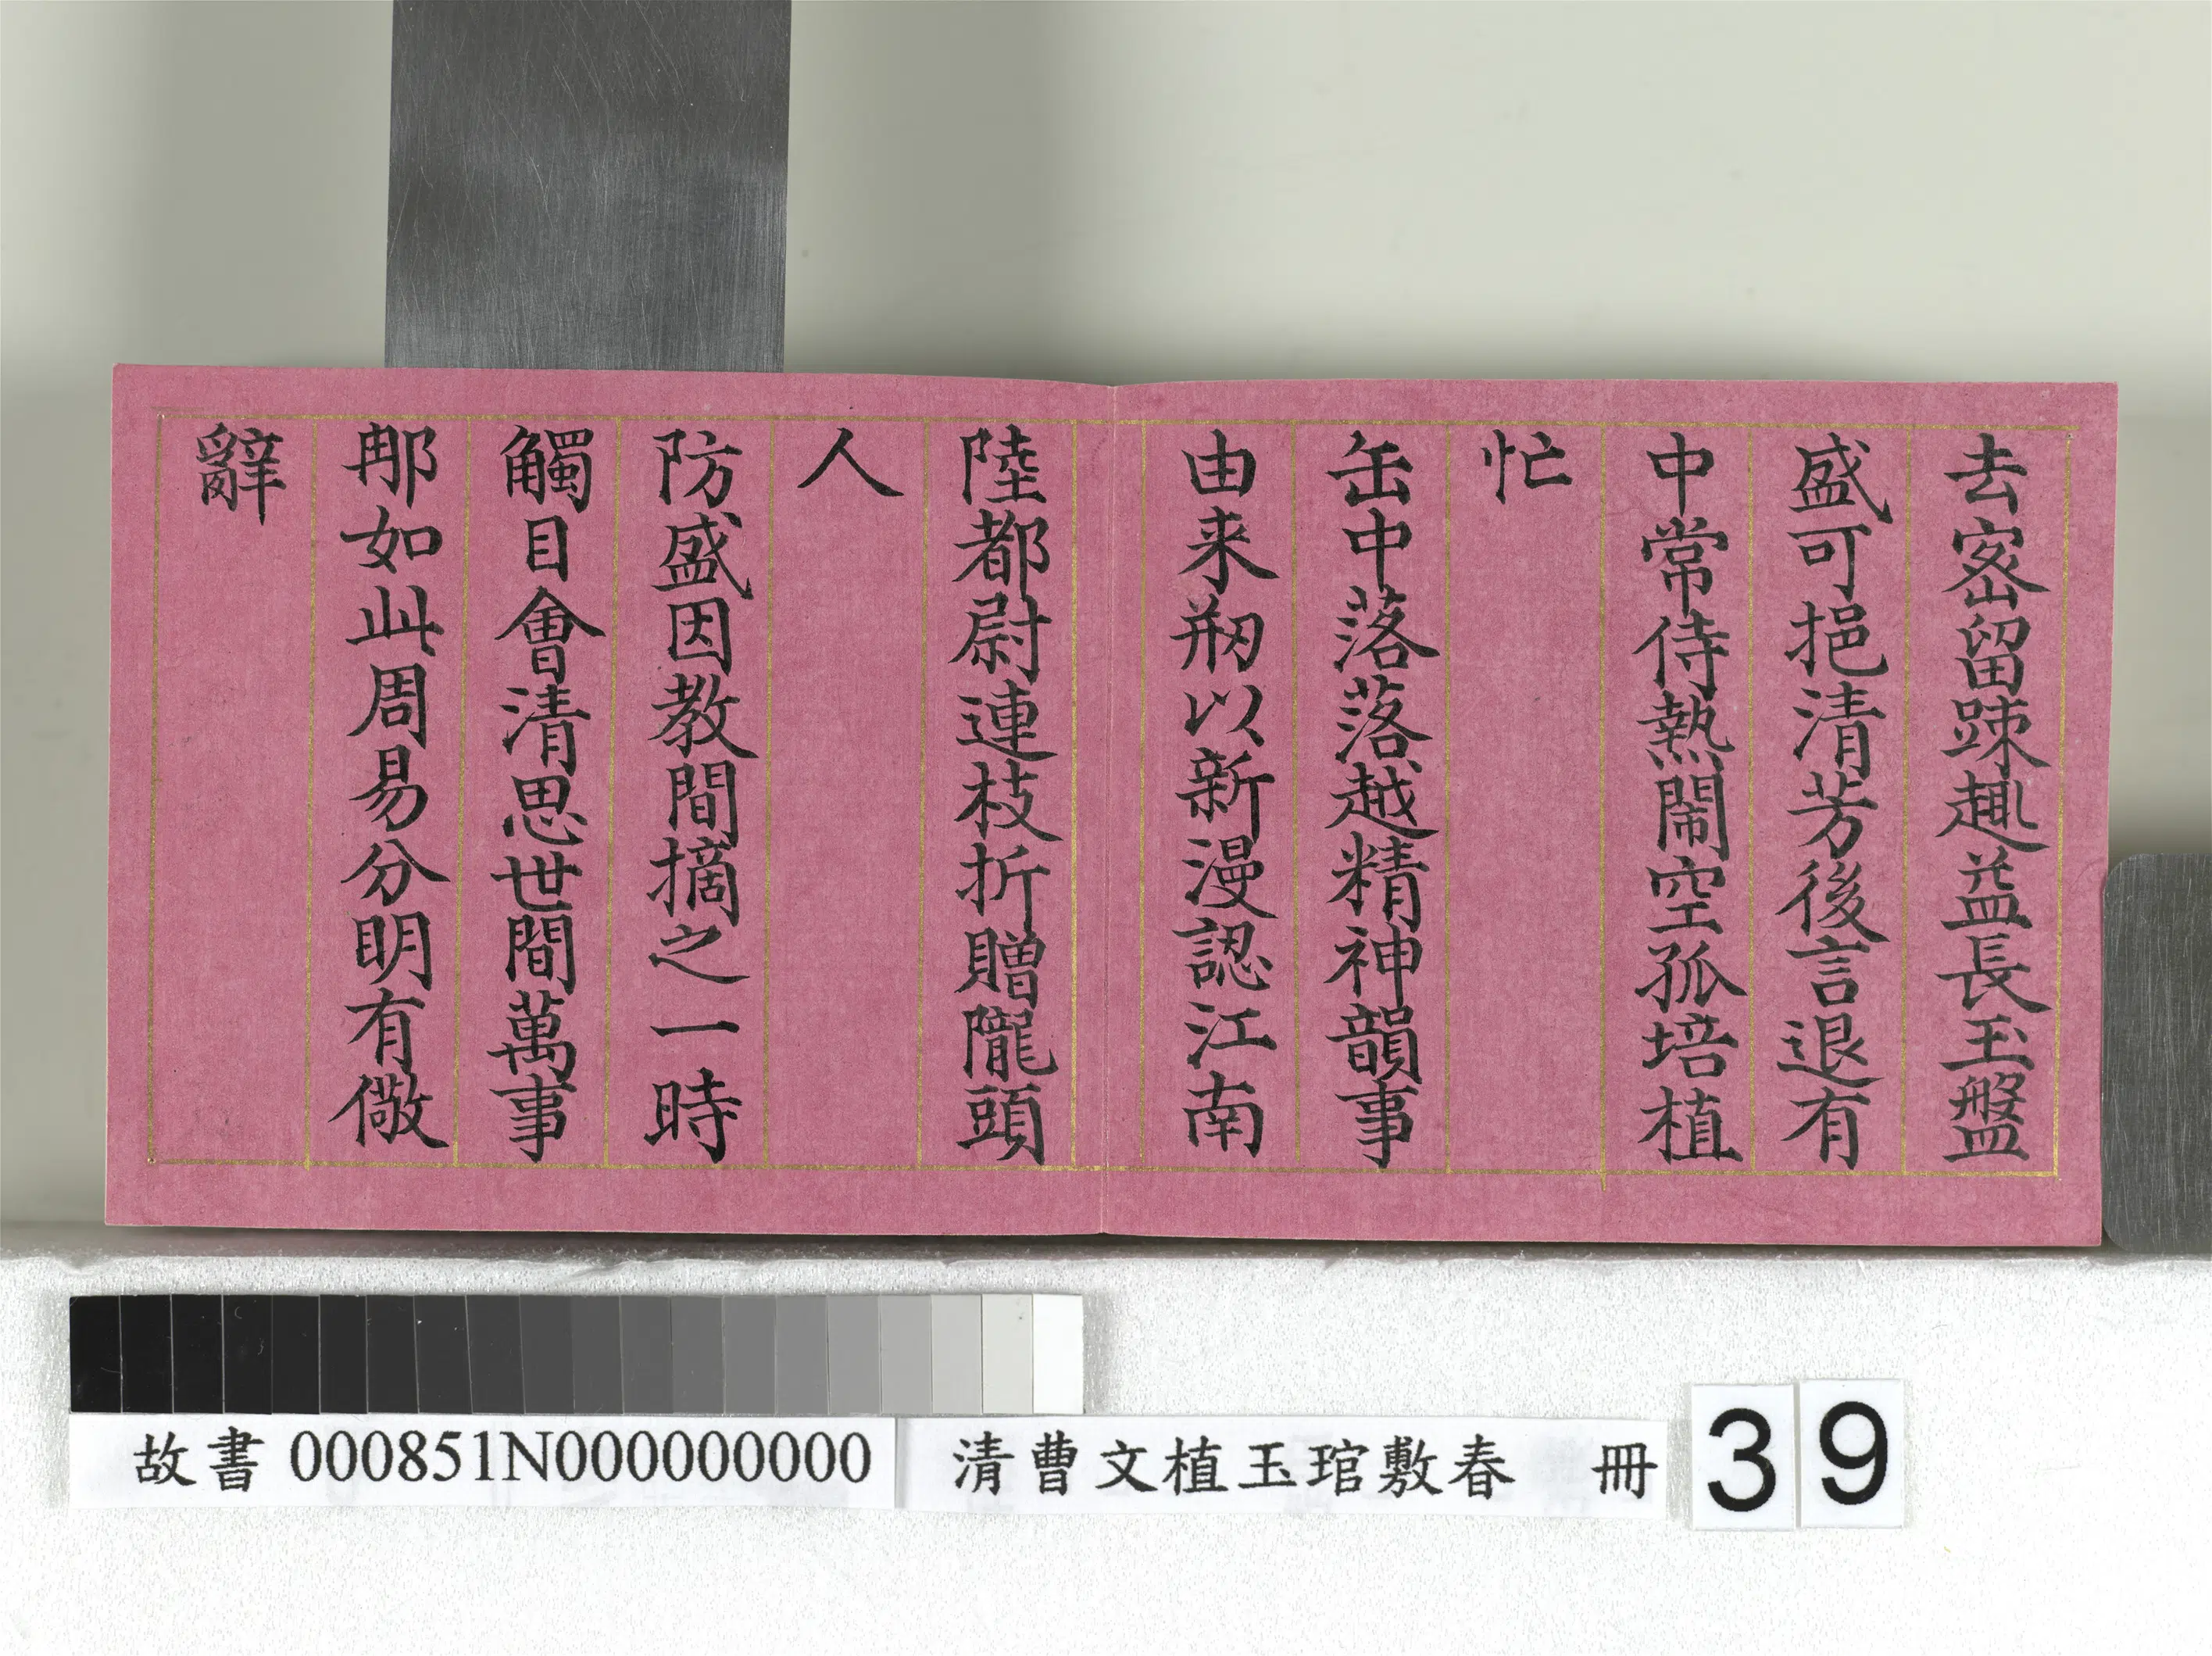 去密留踈趣益長玉盤
盛可挹清芳後言退有
中常侍熱鬧空孤培植
忙
缶中落落越精神韻事
由来剏以新漫認江南
陸都尉連枝折贈隴頭
人
防盛因教間摘之一時
觸目會清思世間萬事
那如此周易分明有儆
辭
故書 000851N000000000 清曹文植玉琯敷春 冊 39